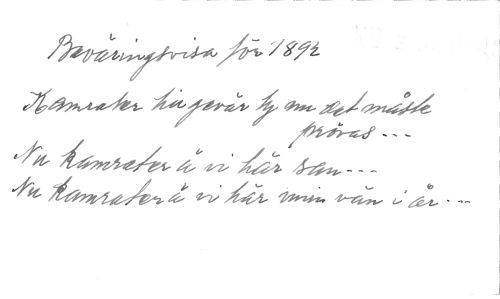 Beväringsvisa för 1892
Kamrater hit gevär ty nu det måste
prövas ---
Nu kamrater ä vi här san---
Nu kamrater ä vi här min vän i år ---